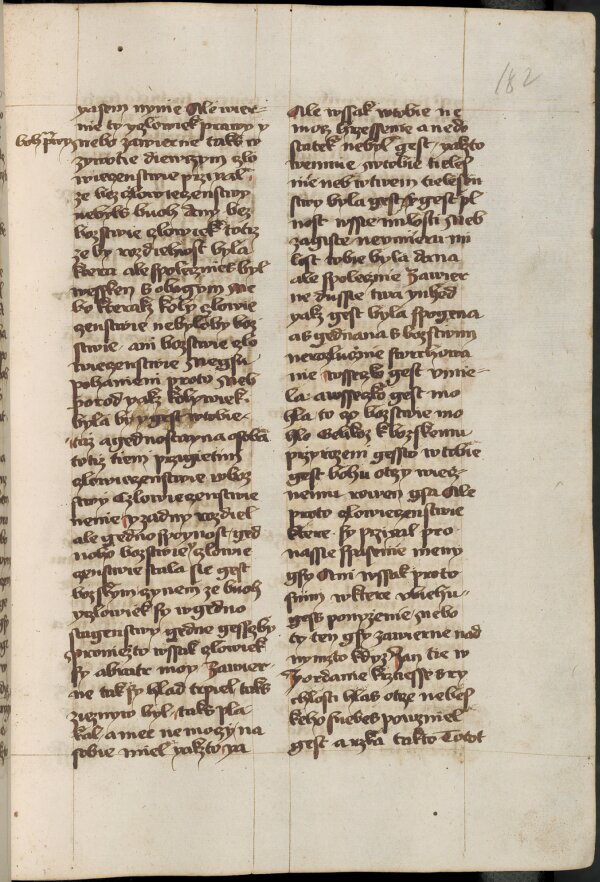 182
yasem nynie Ale wier-
nie ty czlowiek prawy y
boh prawy
nebo zawierne taks w
zywotie diewczym czlo
wieczenstwie przial
ze bez czlowieczenstwy
nebyls buoh Any bez
bozstwie czlowiek totiz
ze by rozdielnost byla
ktera ale spolecznies byl
wessken s obogym Ne
bo kterak koly czlowie
czenstwie nebyloby boz
stwie ani bozstwie czlo
wieczenstwie
pohaniem proto neb
potod yakz kolywiek
byla by gest w tobie
tiz a gednostayna osoba
totiz tiem przigietim
czlowieczenstwie w boz
stwy Czlowieczenstwie
nenie zadny rozdiel
ale gedno spoynost ged
noho bozstwie czlowie
czenstwie stala sie gest
bozskym czynem ze buoh
y czlowiek sy w gedno
stagenstwy gedne gessto by
Proniezto wssak czlowiek
sy abrate moy Zawier-
ne tak sy hlad trpiel taks
zieznyw byl taks pla
kal a mec nemoczy na
sobie miel yakzto ya
Ale wssak w tobie ne
moz hrzessenie a nedo
statek nebyl gest yakzto
we mnie w tobie tieles
nie neb w twem tielesen
stwy byla gest y gest pl
nost wssie milosti Neb
zagiste ne v mieru mi
lost tobie byla dana
ale spolecznie Zawier
ne dussie twa ynhed
yakz gest byla spogena
a sgednana s bozstwim
nerozlucznie stwrchowa
nie wsseczko gest vmie
la a wsseczko gest mo
hla to czo bozstwie mo
hlo Gelikoz k bozskemu
przyrozeni gessto w tobie
gest bohu otczy wiecz-
nemu rowen gsa Ale
proto czlowieczenstwie
ktere sy przigal pro
nassie spasenie menssy
gsy Ani wssak proto
snim w ktere v biehu-
gess ponyzenie nebo
ty ten gsy zawierne nad
nymzto kdyz Jan tie w
Jordanie krztiesse s ry
chlosti hlas otcze nebes
keho s nebes powzniel
gest a rzka takto Totot